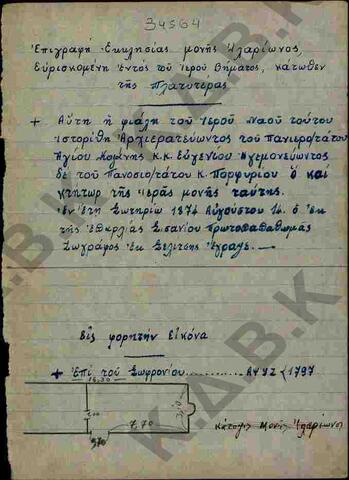 34564
Επιγραφή Εκκλησίας μονής Ιλαρίωνος,
εὑρισκομένη ἐντός τοῦ ἱεροῦ βήματος, κάτωθεν
τῆς Πλατυτέρας
+ Αὕτη ἡ φιάλη τοῦ ἱεροῦ Ναοῦ τούτου
ἱστορίθη Ἀρχιερατεύωντος τοῦ πανιερο/τάτου
Ἁγίου Μογλένης κ.κ. Εὐγενίου Ἡγεμονεύωντος
δέ τοῦ πανοσιο/τάτου κ. Πορφυρίου ὁ καί
κτήτωρ τῆς ἱερᾶς μονῆς ταύτης.
ἐν ἔτη Σωτηρίω 1874 Αὐγούστου 14. ὁ ἐκ
τῆς Σισανίου Πρωτοπαπαθωμᾶς
Ζωγράφος ἐκ Σελίτσης ἔγραψε.
Εἰς φορητήν εἰκόνα
+ Ἐπί τοῦ Σωφρονίου.......... ΑΨϟΖ {1797
16,30
7,70
κάτοψις Μονῆς Ἰλαρίωνος
Κ.Δ.Β.Κ